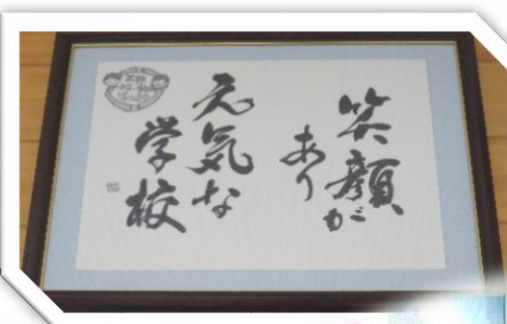 笑顔が
あり
元気な
学校